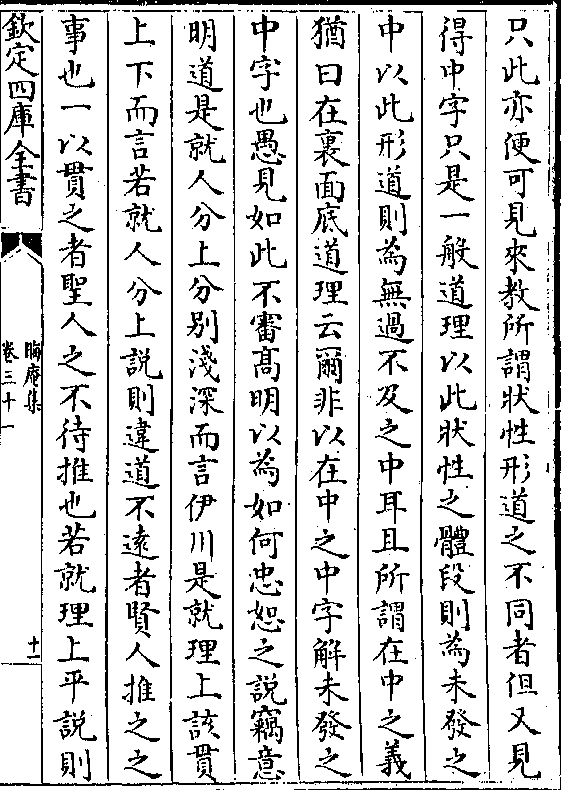 只此亦便可見來教所謂狀性形道之不同者但又見
得中字只是一般道理以此狀性之體段則為未發之
中以此形道則為無過不及之中耳且所謂在中之義
猶曰在裏面底道理云爾非以在中之中字解未發之
中字也愚見如此不審髙明以為如何忠恕之說竊意
明道是就人分上分别淺深而言伊川是就理上該貫
上下而言若就人分上說則違道不逺者賢人推之之
事也一以貫之者聖人之不待推也若就理上平說則
欽定四庫全書
晦庵集
卷三十一
十一